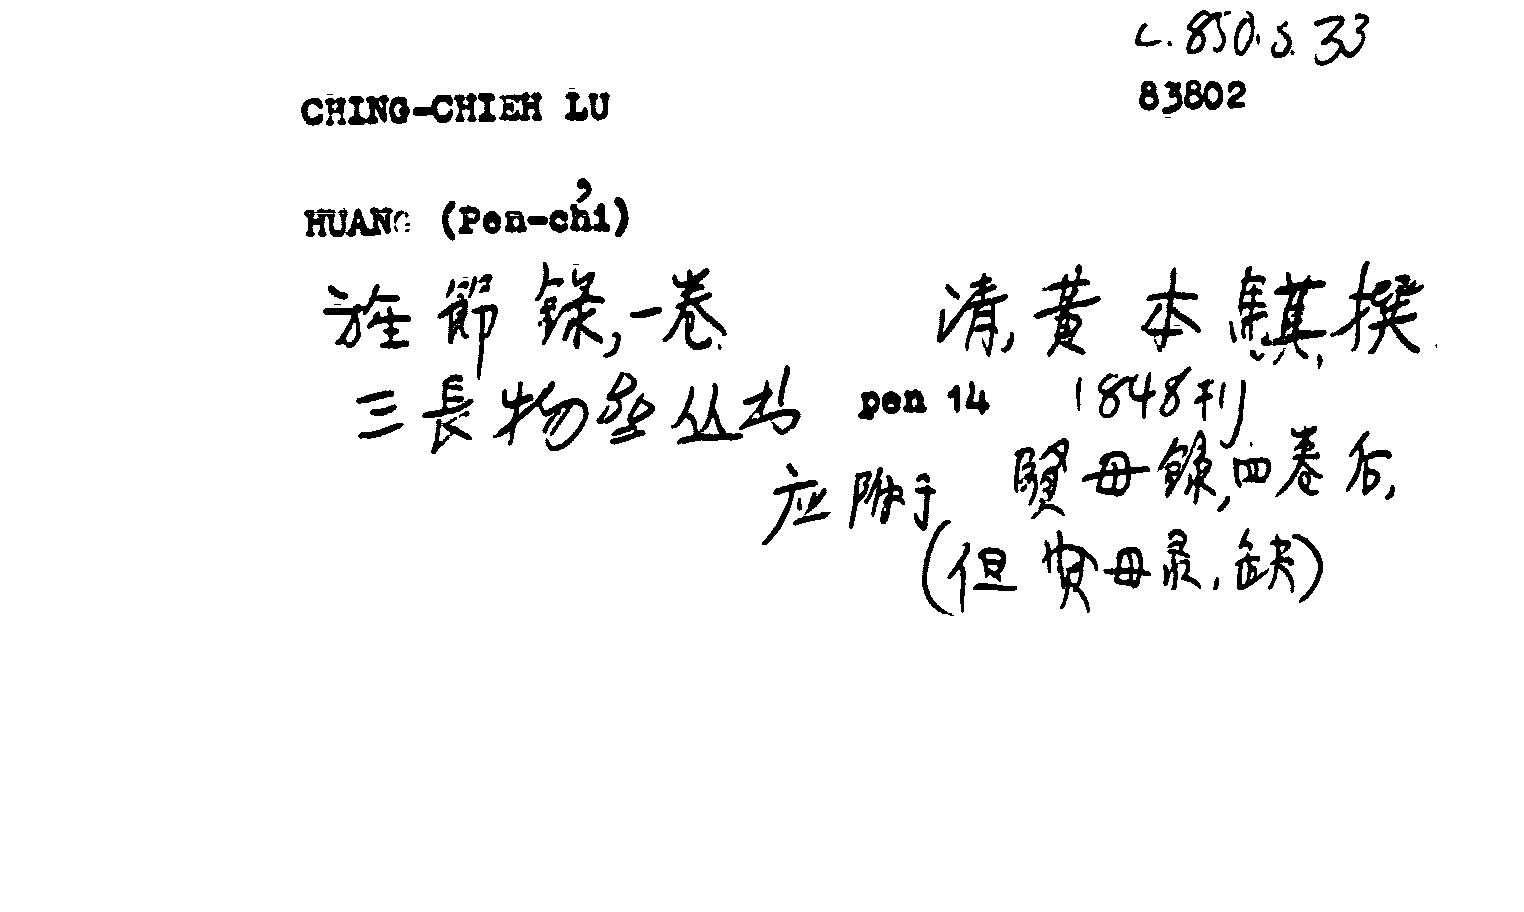 C.850.S.33
CHING-CHIEH LU 83802
HUANG (Pen-ch'i)
旌節錄,一卷 清,黃本騏,撰.
三長物齋丛书 pen 14 1848刊
应附于 賢母錄,四卷后,
(但贤母录,缺)